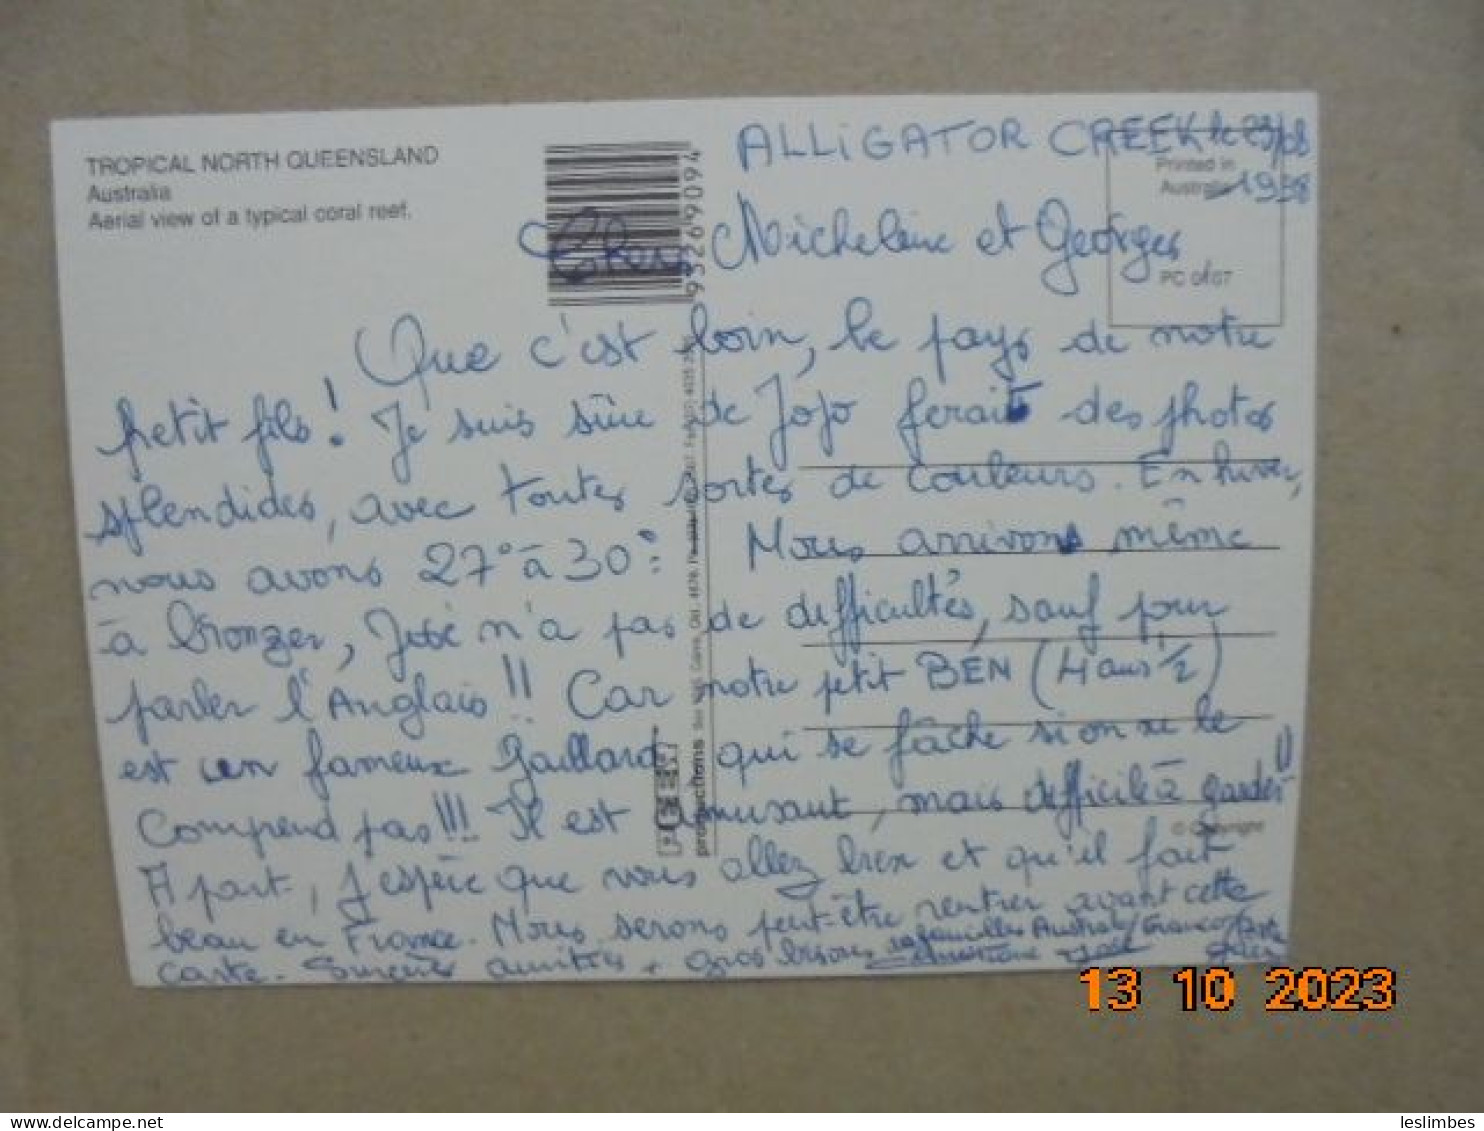 TROPICAL NORTH QUEENSLAND
Australia
Aerial view of a typical coral reef.
9326969094
Printed in
Australia
PC
© Copyright
productions
ALLiGATOR CREEK le
Chers Micheline et Georges
Que c'est loin, le pays de notre
petit fils! Je suis sûre de Jojo ferait des photos
splendides, avec toutes sortes de couleurs. En hiver,
nous avons 27° à 30° Nous arrivons même
à bronzer, José n'a pas de difficultés, sauf pour
parler l'Anglais!! Car notre petit BEN (4 ans 1/2)
est un fameux gaillard qui se fâche si on ne le
comprend pas!!! Il est amusant, mais difficile à garder!!
A part, j'espère que vous allez bien et qu'il fait
beau en France. Nous serons peut-être rentrer avant cette
carte. Sincères amitiés + gros bisous
13 10 2023
leslimbes